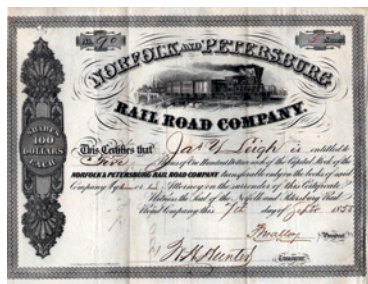 No. 90
5 Shares
NORFOLK AND PETERSBURG
RAIL ROAD COMPANY.
SHARES
100
DOLLARS
EACH
This Certifies that Jas Y Leigh is entitled to
Five Shares of One Hundred Dollars each of the Capital Stock of the
NORFOLK & PETERSBURG RAIL ROAD COMPANY transferable only on the books of said
Company by Attorney on the surrender of this Certificate
Witness the Seal of the Norfolk and Petersburg Rail
Road Company this 7th day of 1858
President
Treasurer